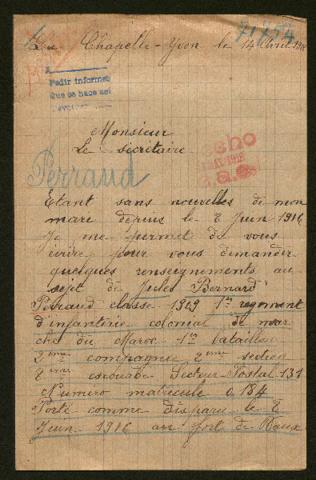 La Chapelle-Yvon le 14 Avril
71754
Pedir informes
Que se hace
Monsieur
Le secrétaire
hecho
Perraud
Etant sans nouvelles de mon
mari depuis le 2 Juin 1916
Je me permet de vous
écrire pour vous demander
quelques renseignements au
sujet de Jules Bernard
Perraud classe 1909 1er regiment
d'infanterie colonial de mar
che du Maroc 1er bataillon
2eme compagnie 2eme section
escouade Secteur Postal 131
Numero matricule 0184
Porté comme disparu le 2
Juin 1916 au fort de Vaux